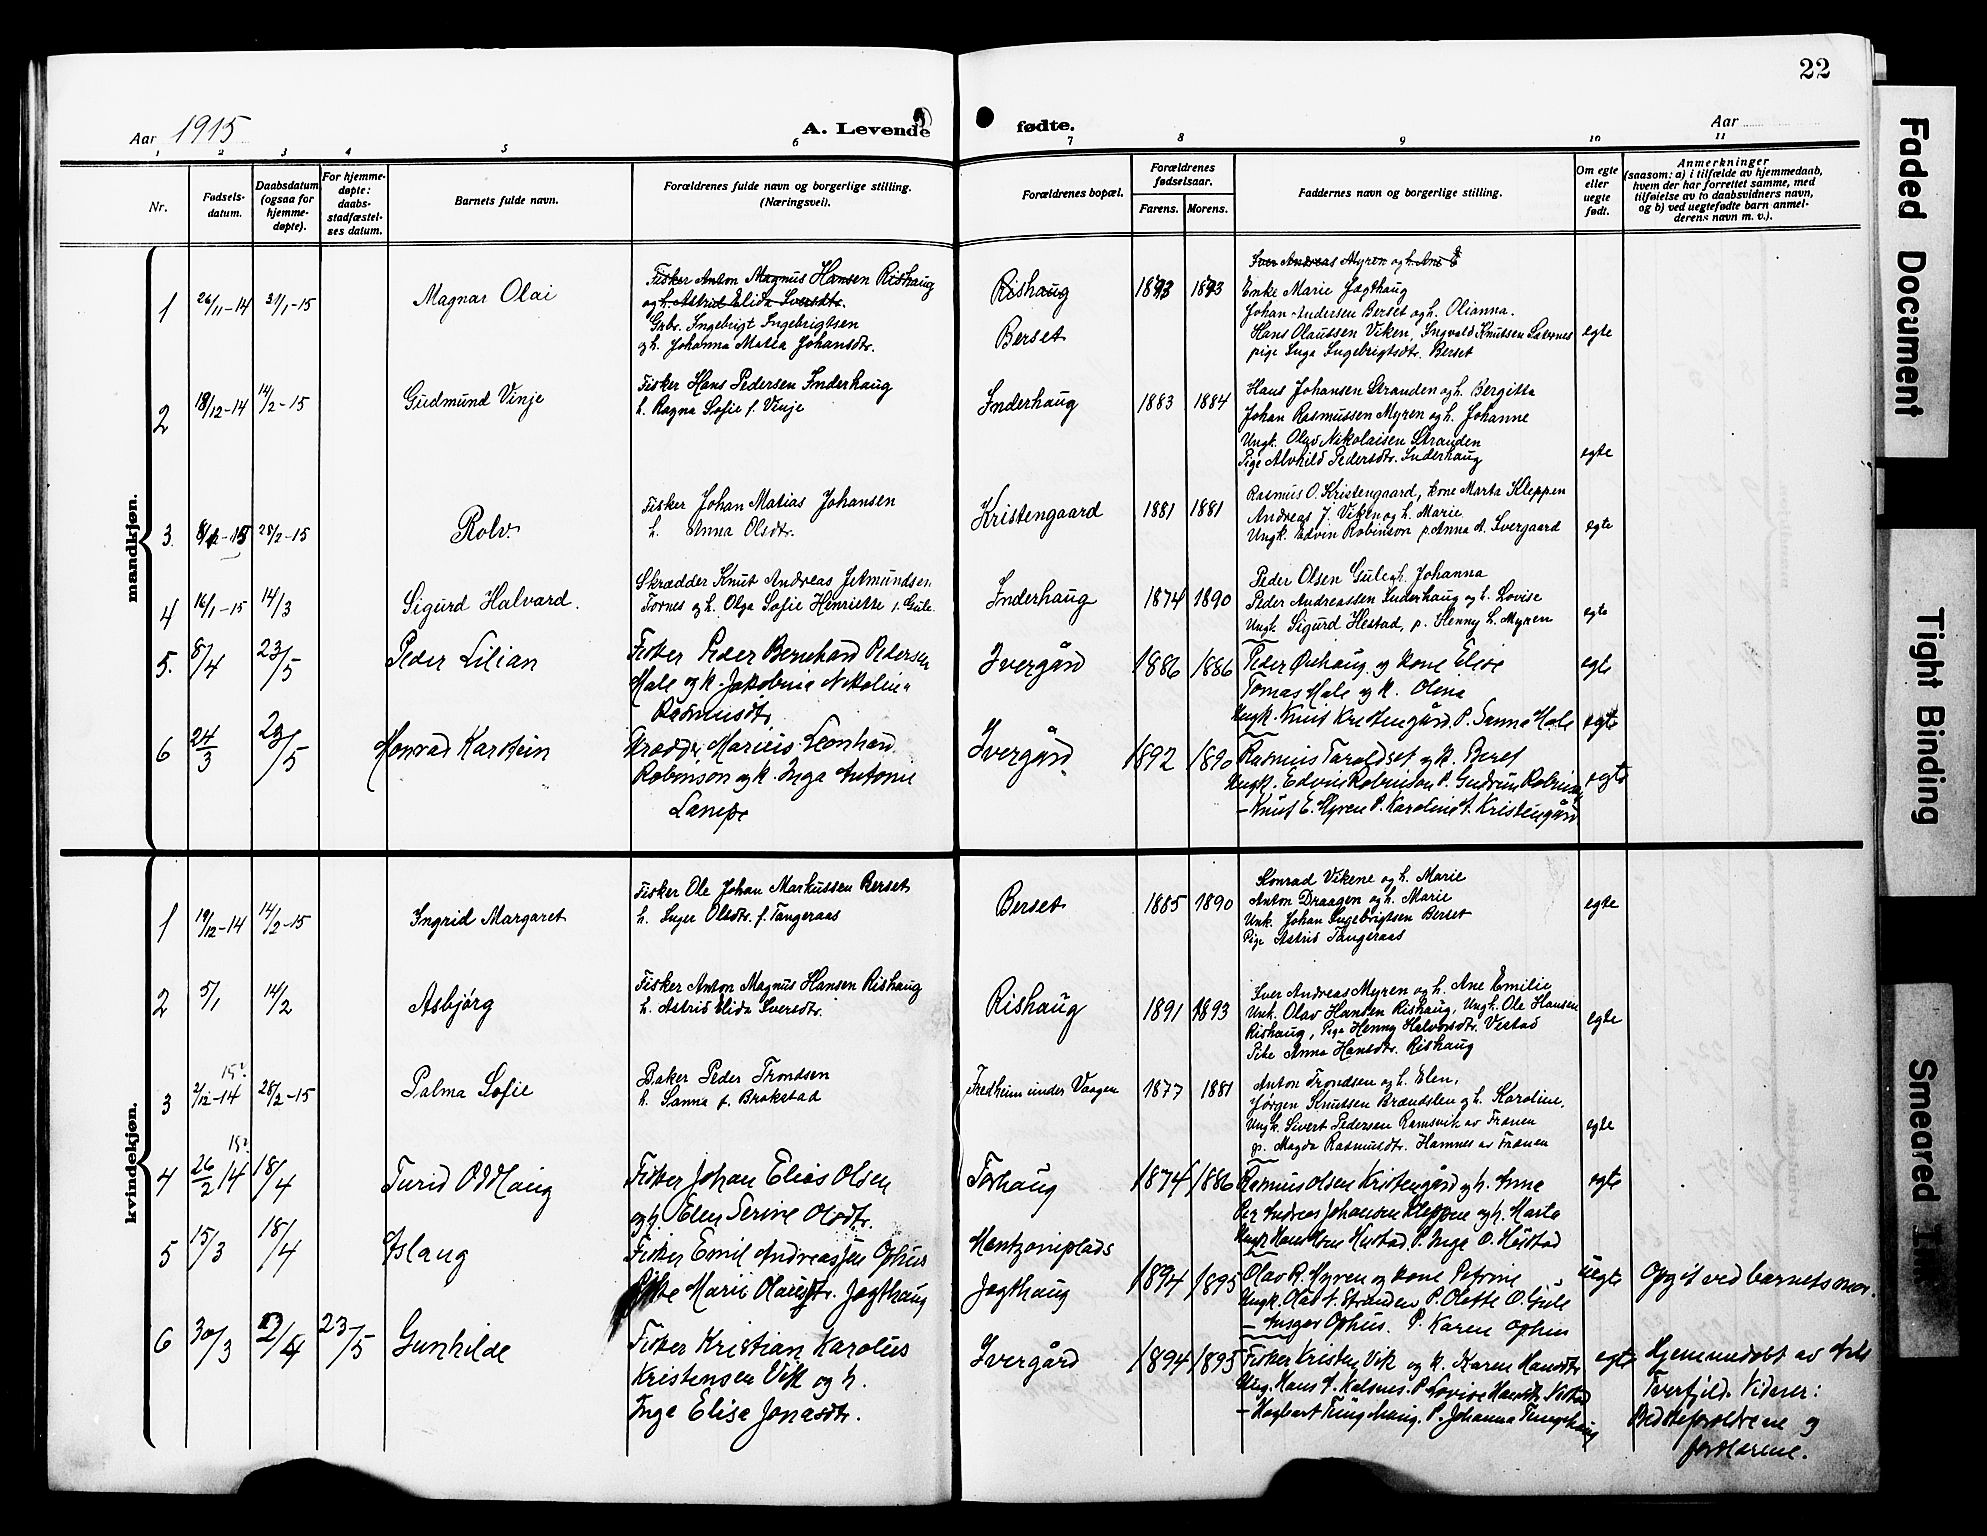 22
Aar 1915
A. Levende
fødte.
Aar
1 2 3 4 5 6 7 8 9 10 11
Nr.
Fødsels-
datum.
Daabsdatum
(ogsaa for
hjemme-
døpte).
For hjemme-
døpte:
daabs-
stadfæstel-
ses datum.
Barnets fulde navn.
Forældrenes fulde navn og borgerlige stilling.
(Næringsvei).
Forældrenes bopæl.
Forældrenes
fødselsaar.
Farens. Morens.
Faddernes navn og borgerlige stilling.
Om egte
eller
uegte
født.
Anmerkninger
(saasom: a) i tilfælde av hjemmedaab,
hvem der har forrettet samme, med
tilføielse av to daabsvidners navn,
og b) ved uegtefødte barn anmel-
derens navn m. v.).
mandkjøn.
1 26/11-14 31/1-15 Magnar Olai
Fisker Anton Magnus Hansen Rishaug
og h. Astrid Elida Iversdtr.
Grbr. Ingebrigt Ingebrigtsen
og h. Johanna Matea Johansdtr.
Rishaug
Berset
1873 1873
Iver Andreas Myren og h. Ane E
Enke Marie Jægthaug
Johan Andersen Berset og h. Olianna.
Hans Olaussen Viken, Ingvald Knutsen
pige Inga Ingebrigtsdtr. Berset
egte
2 18/12-14 14/2-15 Gudmund Vinje
Fisker Hans Pedersen Inderhaug
h. Ragna Sofie f. Vinje
Inderhaug 1883 1884
Hans Johansen Stranden og h. Bergitta
Johan Rasmussen Myren og h. Johanne
Ungk. Olav Nikolaisen Stranden
Pige Alvhild Pedersdtr. Inderhaug
egte
3. 28/2-15 Rolv.
Fisker Johan Matias Johansen
h. Anna Olsdtr.
Kristengaard 1881 1881
Rasmus O. Kristengaard, kone Marta Kleppen
Andreas J. Viken og h. Marie
Ungk. Edvin Robinson p. Anna A. Ivergaard
egte
4 16/1-15 14/3 Sigurd Halvard.
Skrædder Knut Andreas Jetmundsen
Tornes og h. Olga Sofie Henriette f. Gule
Inderhaug 1874 1890
Peder Olsen Gule h. Johanna
Peder Andreassen Inderhaug og h. Lovise
Ungk. Sigurd Hestad, p. Henny L. Myren
egte
5. 8/4 23/5 Peder Lilian
Fisker Peder Bernhard Pedersen
Male og k. Jakobine Nikoline
Rasmusdtr.
Ivergård 1886 1886
Peder Orshaug og kone Elise
Tomas Male og k. Olina
Ungk. Knut Kristengård, P. Sanna Male
egte
egte
6 24/3 23/5 Konrad Karstein
Skrædder Marius Leonhard
Robinson og k. Inga Antonie
Lampe
Ivergård 1892 1890
Rasmus Taraldset og k. Beret
Ungk. Edvin Robinson P. Gudrun Robinson
- Knut E. Myren P. Karoline A. Kristengård
egte
kvindekjøn.
1 19/12-14 14/2-15 Ingrid Margaret
Fisker Ole Johan Markussen Berset
h. Inger Olsdtr. f. Tangeraas
Berset 1885 1890
Konrad Vikene og h. Marie
Anton Draagen og h. Marie
Unk. Johan Ingebrigtsen Berset
Pige Astrid Tangeraas
egte
2 5/1 14/2 Asbjørg
Fisker Anton Magnus Hansen Rishaug
h. Astrid Elida Iversdtr.
Rishaug 1891 1893
Iver Andreas Myren og h. Ane Emilie
Unk. Olav Hansen Rishaug, Ungk. Ole Hansen
Rishaug, Pige Henny Halvorsdtr. Vestad
Pike Anna Hansdtr. Rishaug
egte
15?
3 2/12-14 28/2-15 Palma Sofie
Baker Peder Trondsen
h. Sanna f. Brokstad
Fredheim under Vaagen 1877 1881
Anton Trondsen og h. Elen,
Jørgen Knutsen Brændslen og h. Karoline.
Ungk. Sivert Pedersen Ramsvik av Frænen
p. Magda Rasmusdtr. Hamnes av Frænen
egte
15?
4 26/2 14 18/4 Turid Oddlaug
Fisker Johan Elias Olsen
og h. Elen Serine Olsdtr.
Torhaug 1874 1886
Rasmus Olsen Kristengård og h. Anne
Per Andreas Johansen Kleppene og h. Marta
Ungk. Hans Olsen Hustad. P. Inga O. Hustad
egte
5 15/3 18/4 Aslaug
Fisker Emil Andreassen Ophus
Marie Olausdtr. Jægthaug
Mentzoniplads
Jægthaug
1894 1895
Olav R. Myren og kone Petrine
Ungk. Olav A. Stranden P. Olette O. Gule
- Ansgar Ophus. P. Karen Ophus
uegte
Opgit ved barnets mor.
6 30/3 2/4 23/5 Gunhilde
Fisker Kristian Karolus
Kristensen Vik og h.
Inga Elisa Jonasdtr.
Ivergård 1894 1895
Fisker Kristen Vik og k. Karen Hansdtr
Ung. Hans A. Malsnes. P. Lovise Hansdtr Vestad
- Hagbart Tunghaug. P. Johanna Tunghaug
egte
Hjemmedøbt av
Tverfjeld. Vidner:
Bedsteforældrene og
forældrene.
Faded Document
Tight Binding
Smeared Ink